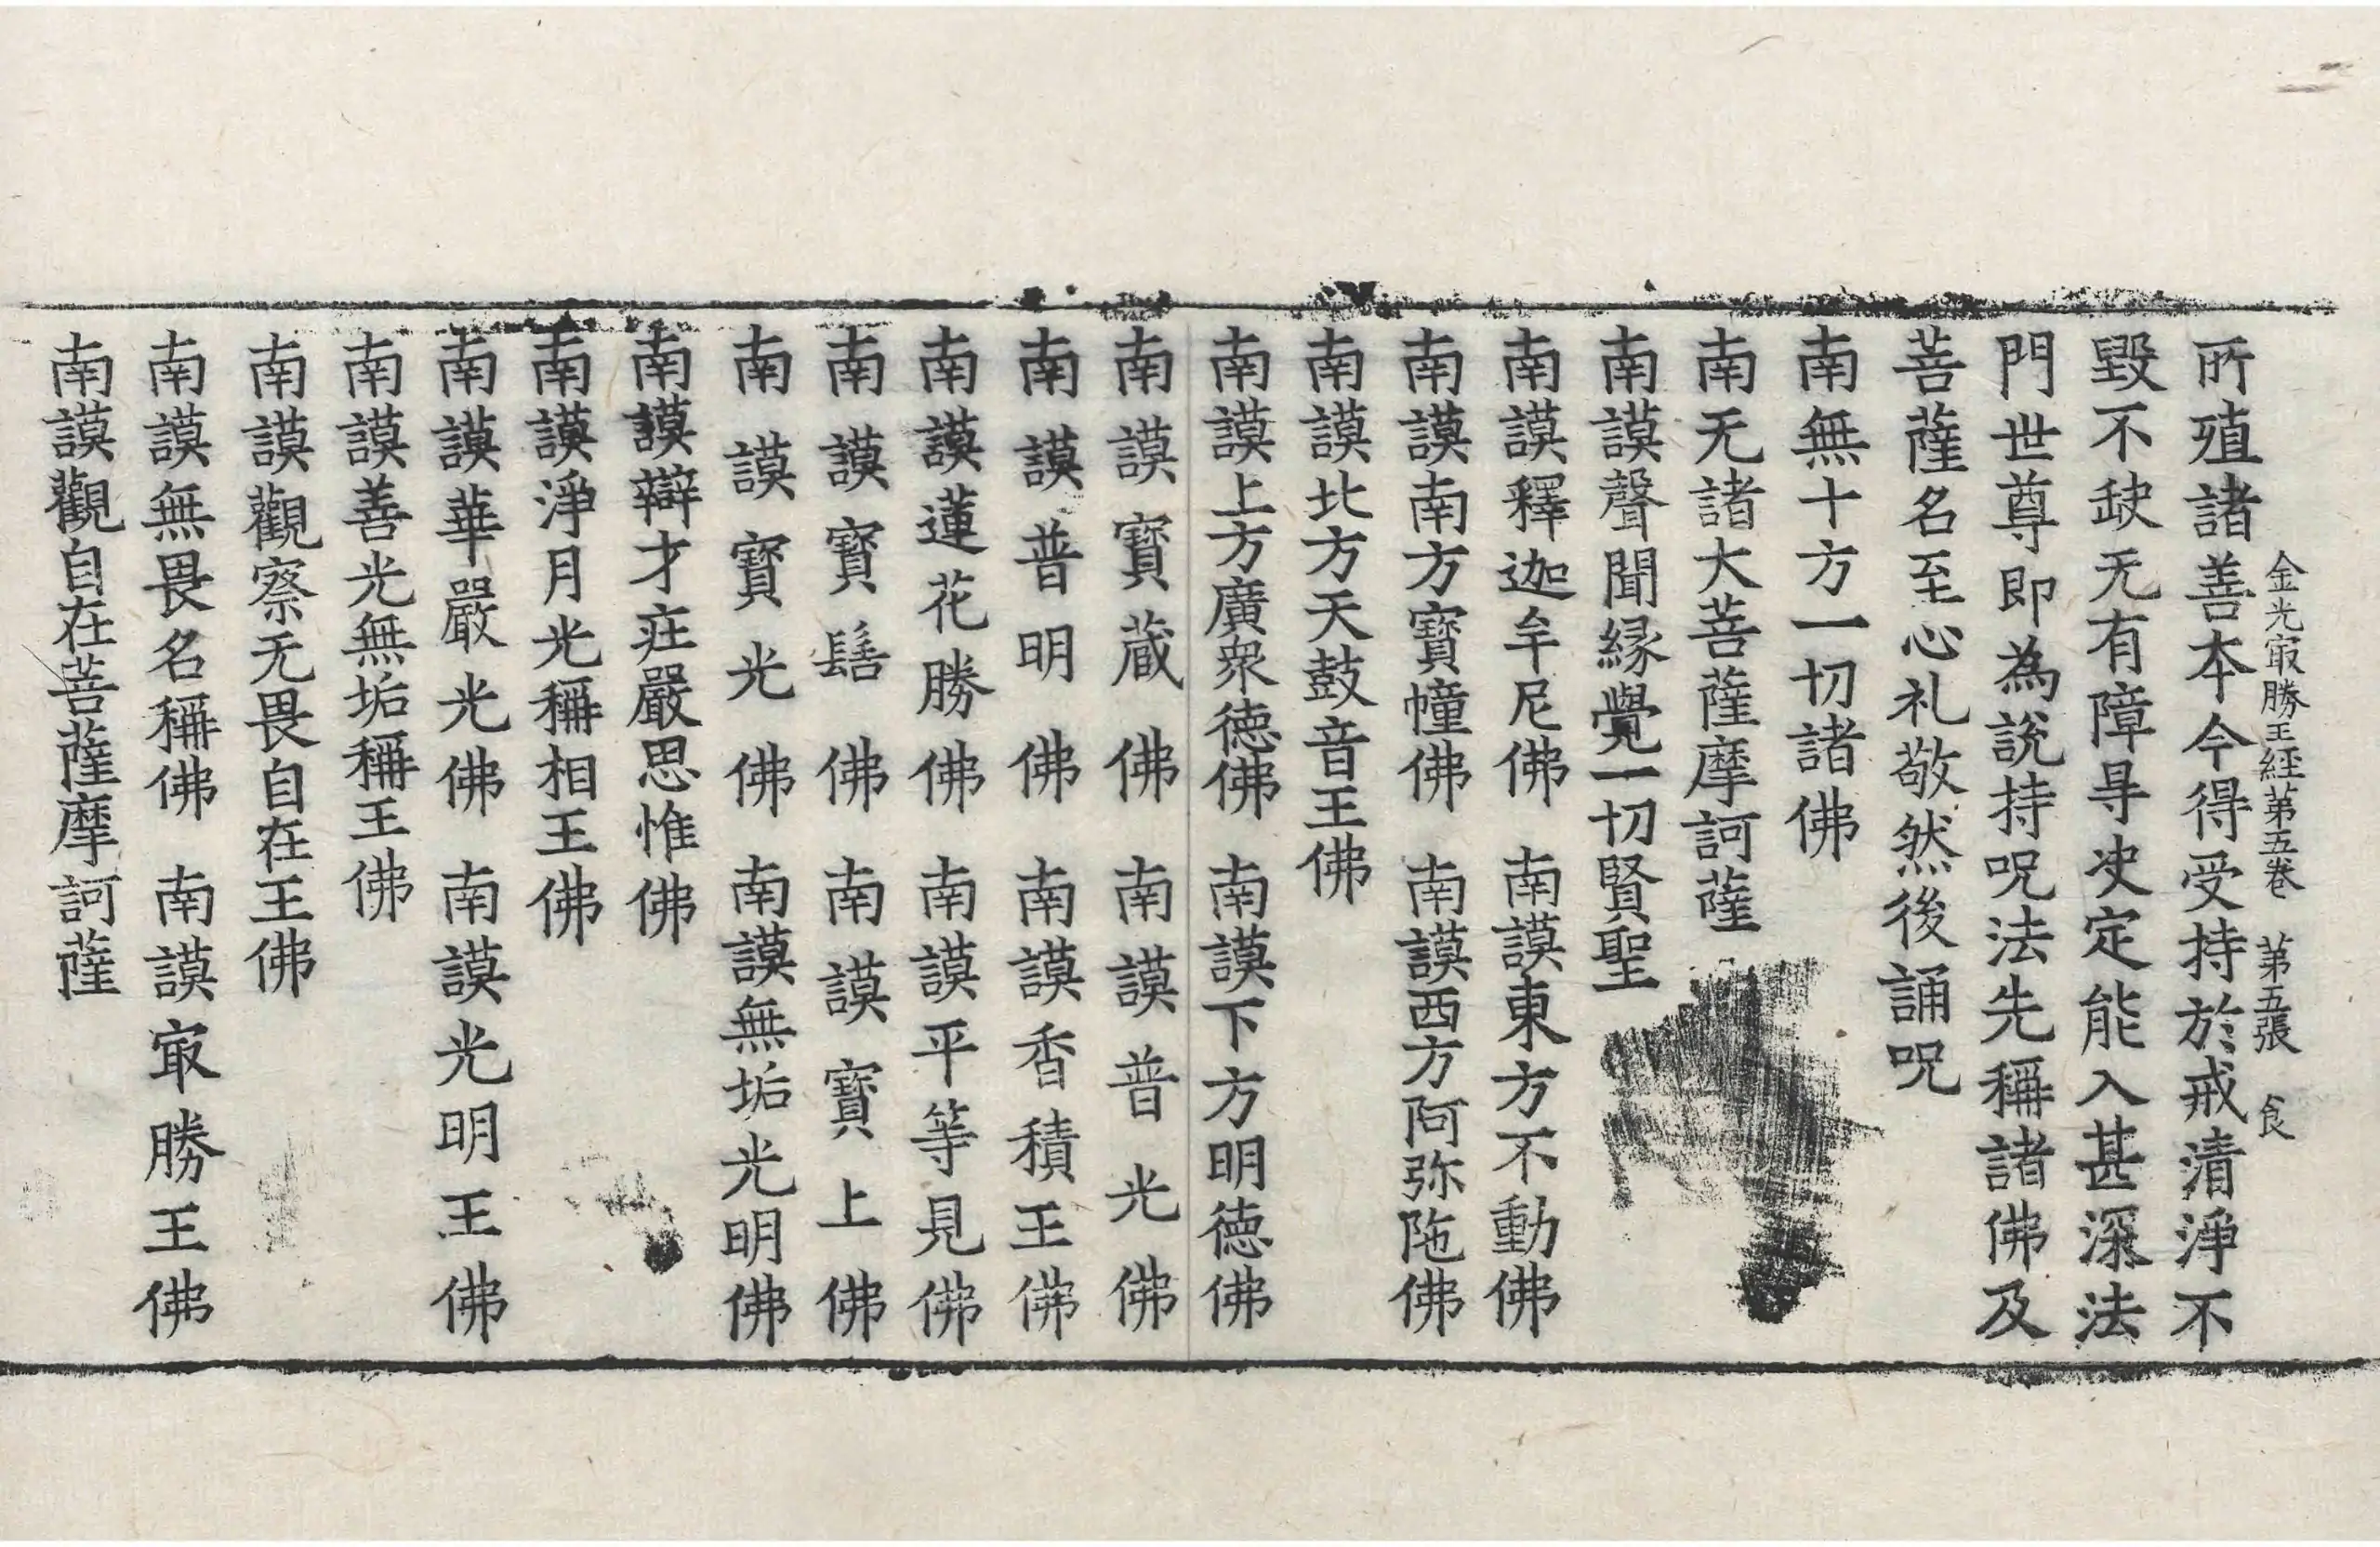 金光㝡勝王經苐五卷　苐五張　食
所殖諸善本今得受持於戒清淨不
毀不𡙇无有障㝵决定能入甚深法
門世尊即為說持呪法先稱諸佛及
菩薩名至心礼敬然後誦呪
南無十方一切諸佛
南无諸大菩薩摩訶薩
南謨聲聞縁覺一切賢聖
南謨釋迦牟尼佛　南謨東方不動佛
南謨南方寶幢佛　南謨西方阿弥陁佛
南謨北方天鼓音王佛
南謨上方廣衆德佛　南謨下方明德佛
南謨寶蔵佛　南謨普光佛
南謨普明佛　南謨香積王佛
南謨蓮花勝佛　南謨平等見佛
南謨寶髻佛　南謨寶上佛
南謨寶光佛　南謨無垢光明佛
南謨辯才莊嚴思惟佛
南謨淨月光稱相王佛
南謨華嚴光佛　南謨光明王佛
南謨善光無垢稱王佛
南謨觀察无畏自在王佛
南謨無畏名稱佛　南謨㝡勝王佛
南謨觀自在菩薩摩訶薩